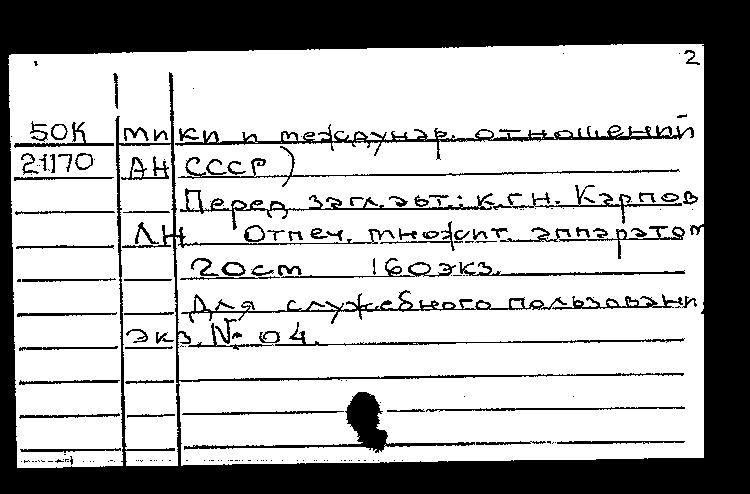 2
50К мики и междунар. отношений
21170 АН СССР)
Перед загл.авт.: к.г.н. Карпов
ЛН Отпеч. множит. аппаратом
20ст 160экз.
Для служебного пользовани
экз. № 04.